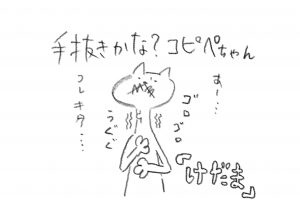 手抜きかな?コピペちゃん
あー…
ゴロゴロ
うぐぐ
コレキタ……
「けだま」